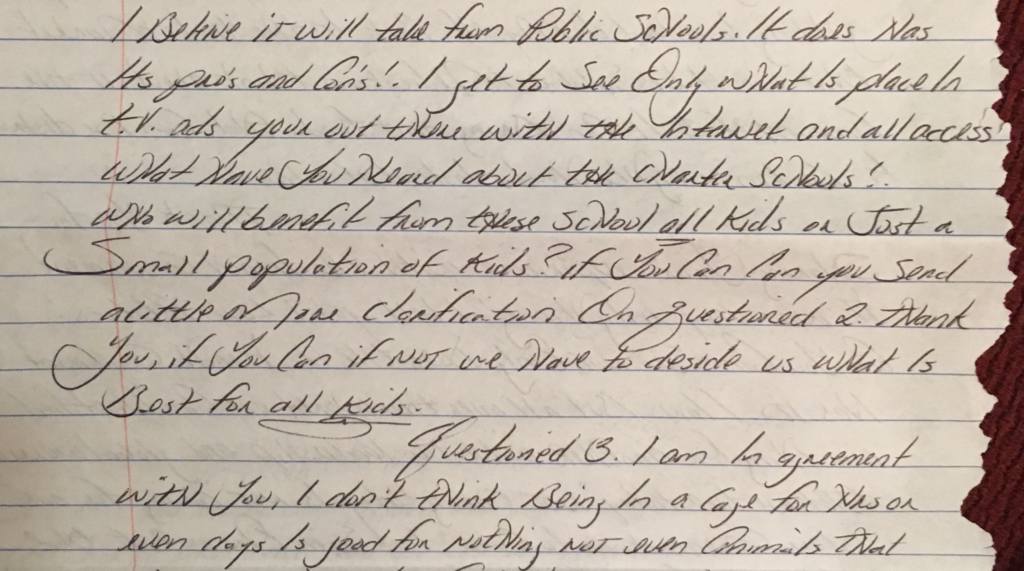 I Beleive it will take from Public Schools. It does Has
Its pro's and Con's!. I get to See Only what Is place In
t.v. ads your out there with the Intranet and all access
what Have You Heard about the Charter Schools!.
who will benefit from these school all Kids or Just a
Small population of Kids? if You Can Can you Send
a little or more Clarification On Questioned 2. thank
You, if You Can if NOT we Have to deside us what Is
Best for all Kids.
Questioned 3. I am In agreement
with You, I don't think Being In a Cage for Hrs or
even days Is good for nothing NOT even Animals that